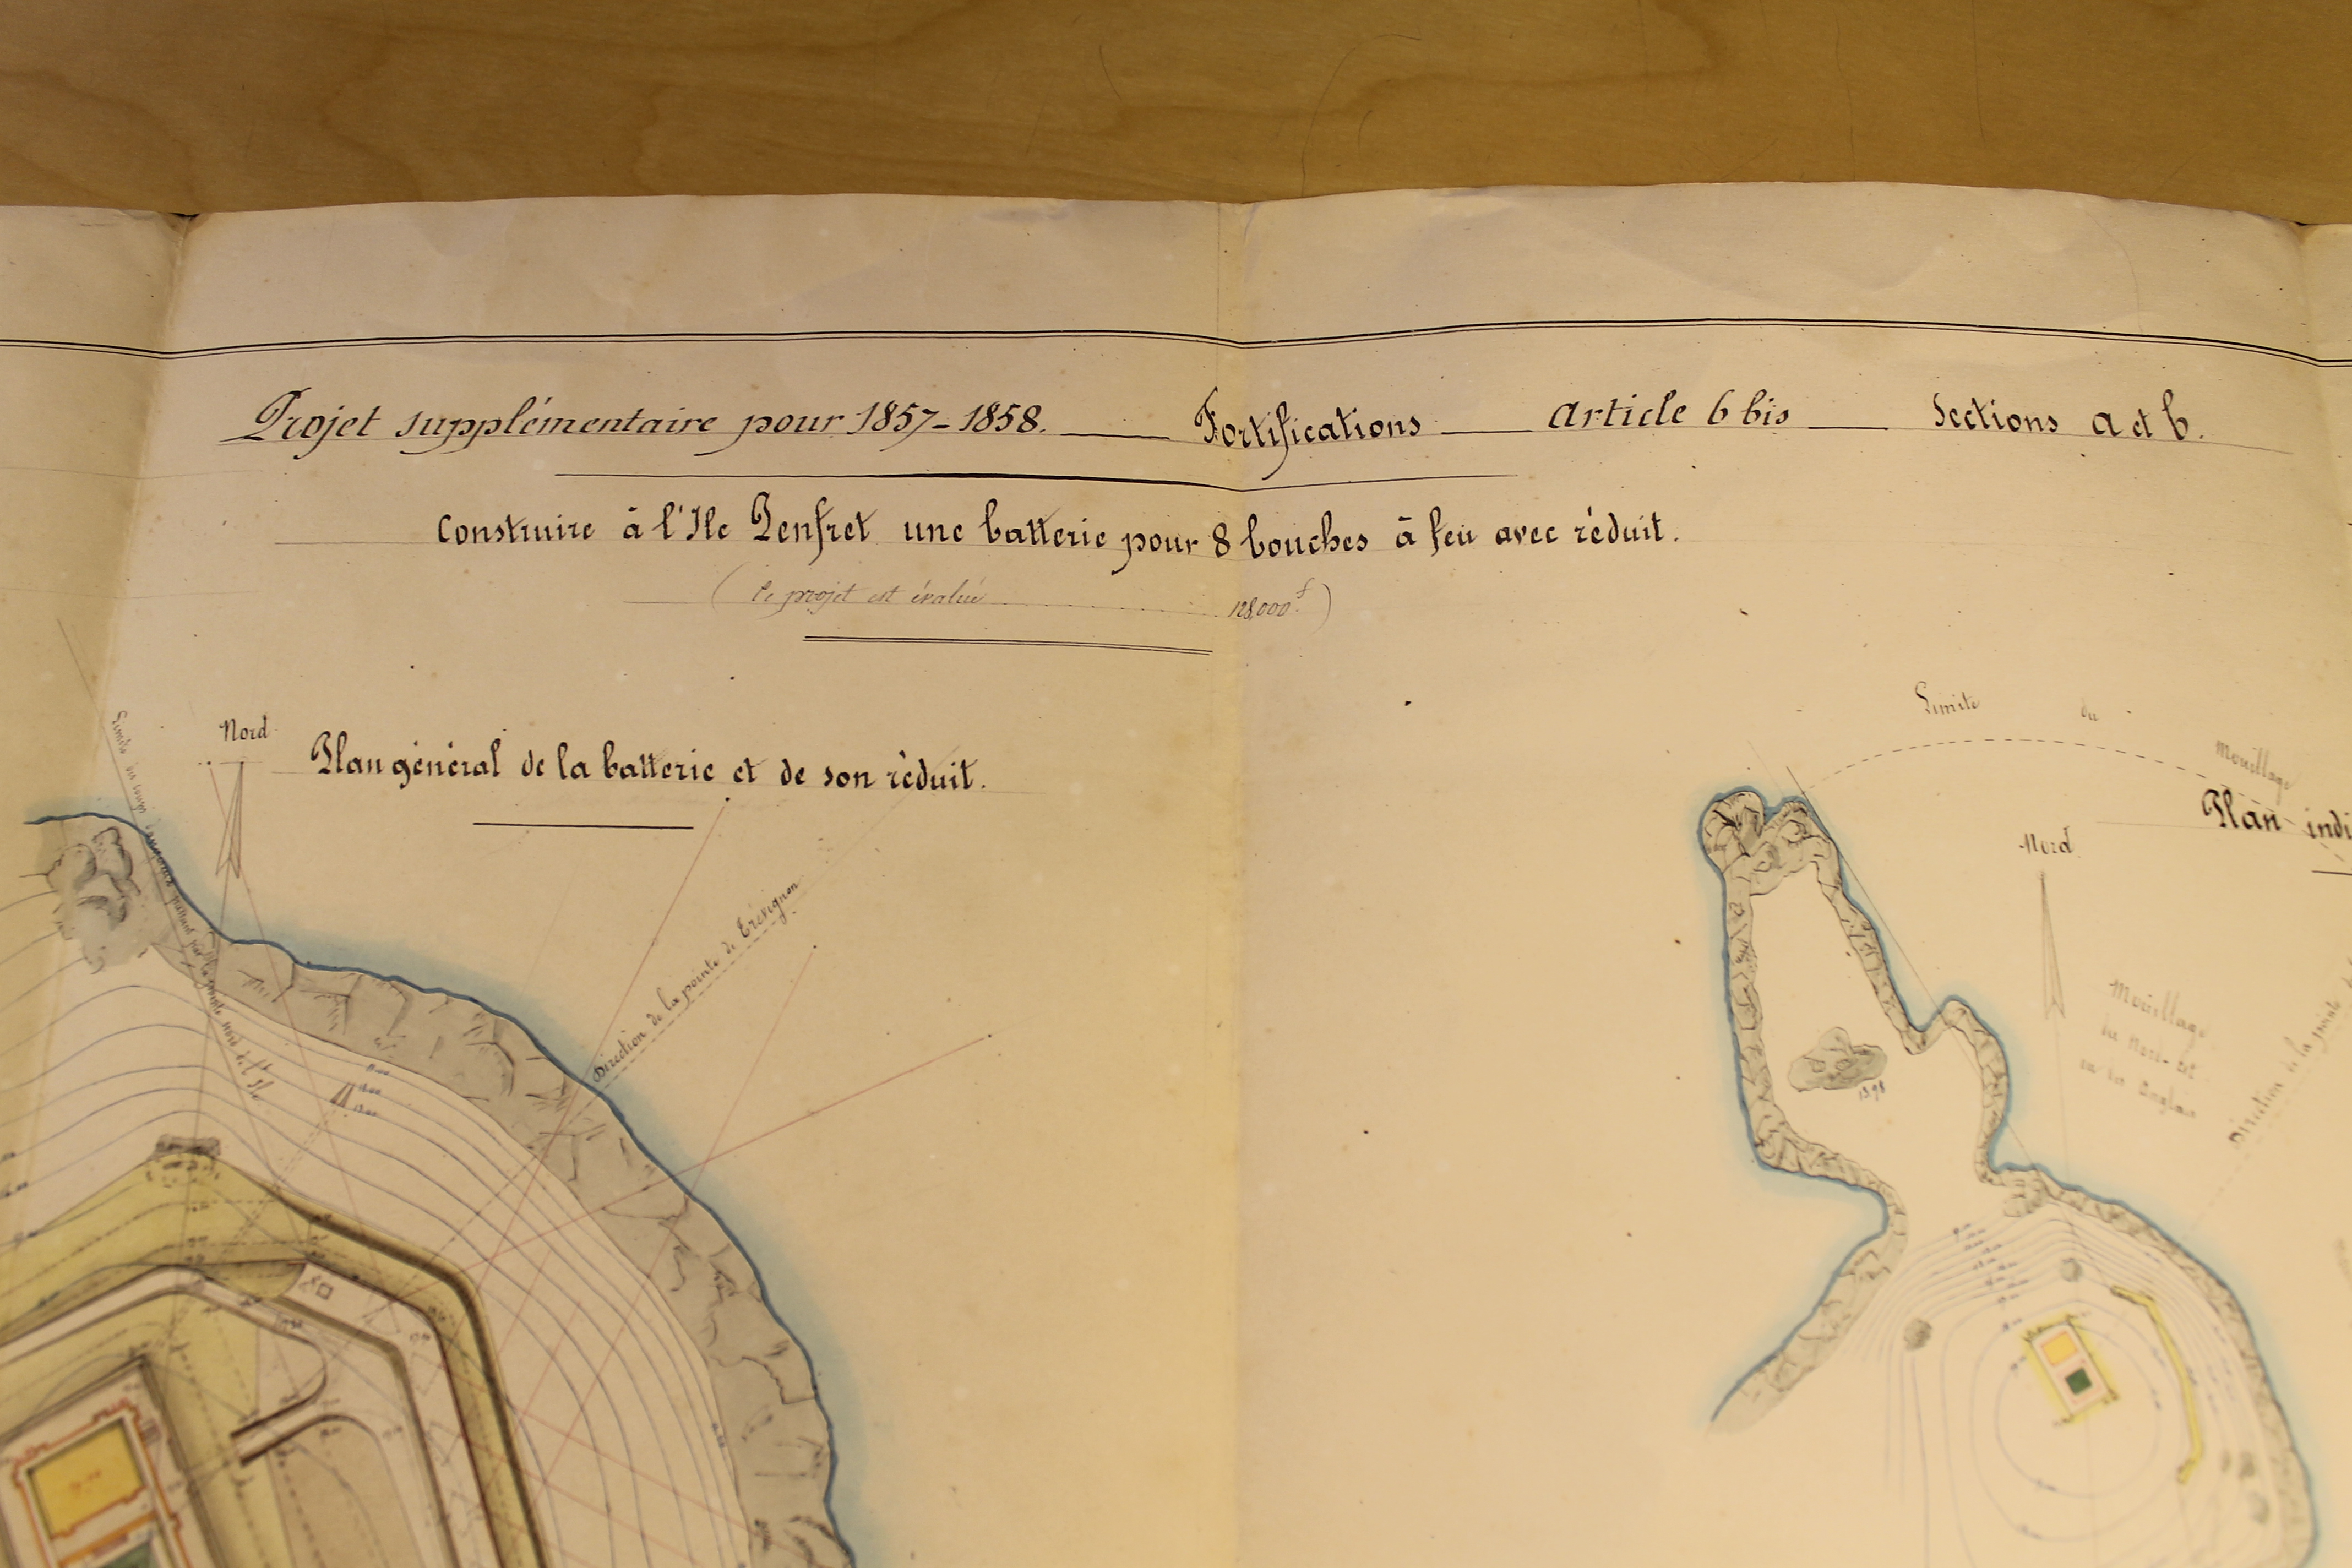 Projet supplémentaire pour 1857-1858. Fortifications Article 6 bis Sections A et b.
Construire à l'Ile Penfret une batterie pour 8 bouches à feu avec réduit.
(Ce projet est évalué 128,000f)
Nord
Plan général de la batterie et de son réduit.
Direction de la pointe de Trévignon
Limite du mouillage
Plan indi
Nord
Mouillage
du Nord-Est
ou des Anglais
Direction de la pointe
13.98